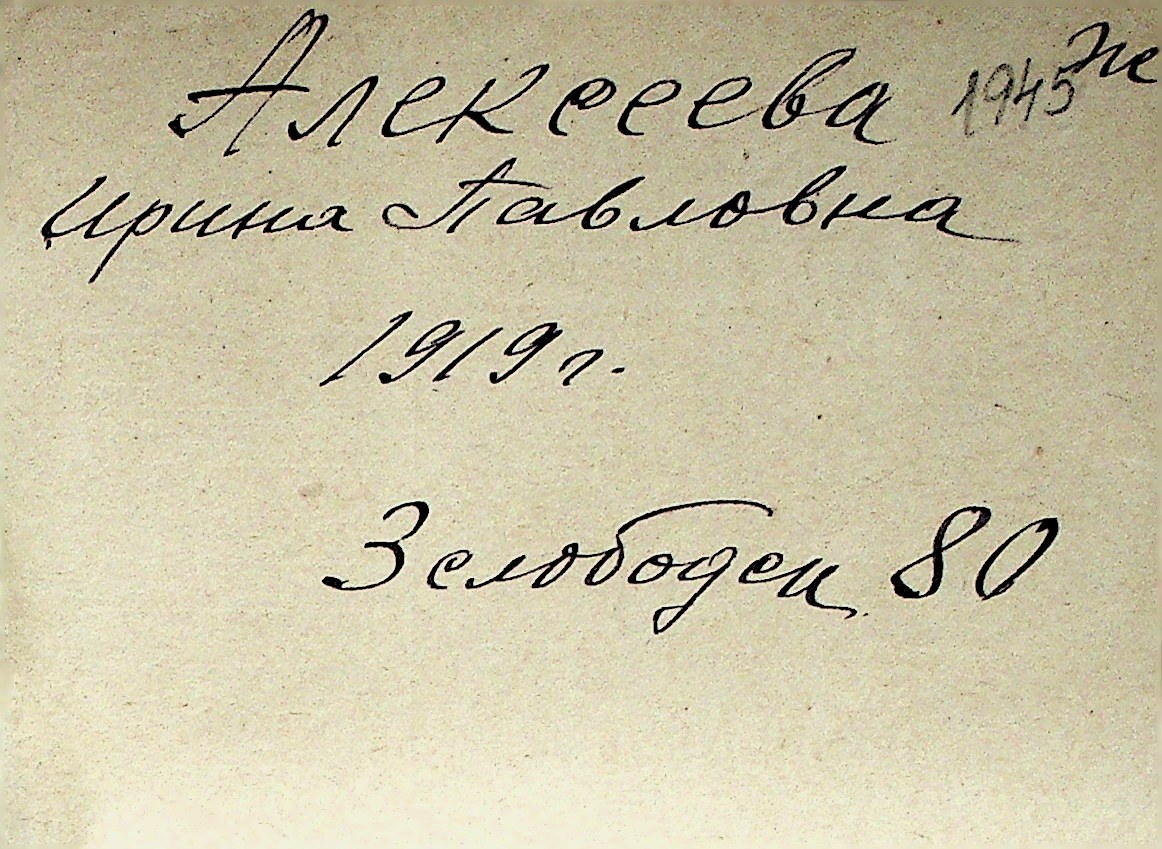 Алексеева 1945 ж
Ирина Павловна
1919 г.
Зелободец 80